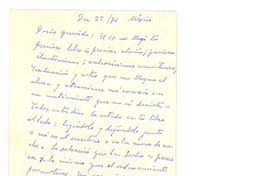 Dic 25/71 México
Doris querida: El 10 me llegó tu
precioso libro: preciosa edición; preciosas
ilustraciones; valiosísimos comentarios,
traducción y notas que me llegan al
alma y atraviesan mi corazón en
un sentimiento que no sé decirte
Todos estos días ha estado en tu libro
al lado; leyéndolo y dejándolo junto
a mí en el escritorio o en la mesa de no-
che. La selección que has hecho es precio
sa y lo mismo que el ordenamiento